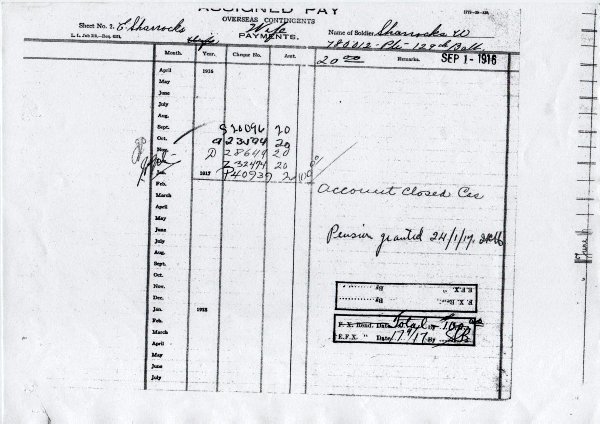 ASSIGNED PAY
OVERSEAS CONTINGENTS
Sheet No. 2. Sharrocks Wife PAYMENTS. Name of Soldier Sharrocks W
L. L. Job 310.
Wife 780012 - Pte - 129th Batt
Month. Year. Cheque No. Amt. 20 00 Remarks. SEP 1 - 1916
April 1916
May
June
July
Aug.
Sept. 820096 20
Oct. 23594 20
Nov. D 28649 20
Z 32474 20
Jan. 1917 P40939 20 100 00
Feb.
Account closed Cas
March
April
May
June
Pension granted 24/1/17.
July
Aug.
Sept.
Oct.
Nov.
E.F.X. By
Dec.
F. X. By
Jan. 1918
Feb.
F. X. Read. Date Total By 100 00
March
E.F.X. " Date By
April
May
June
July